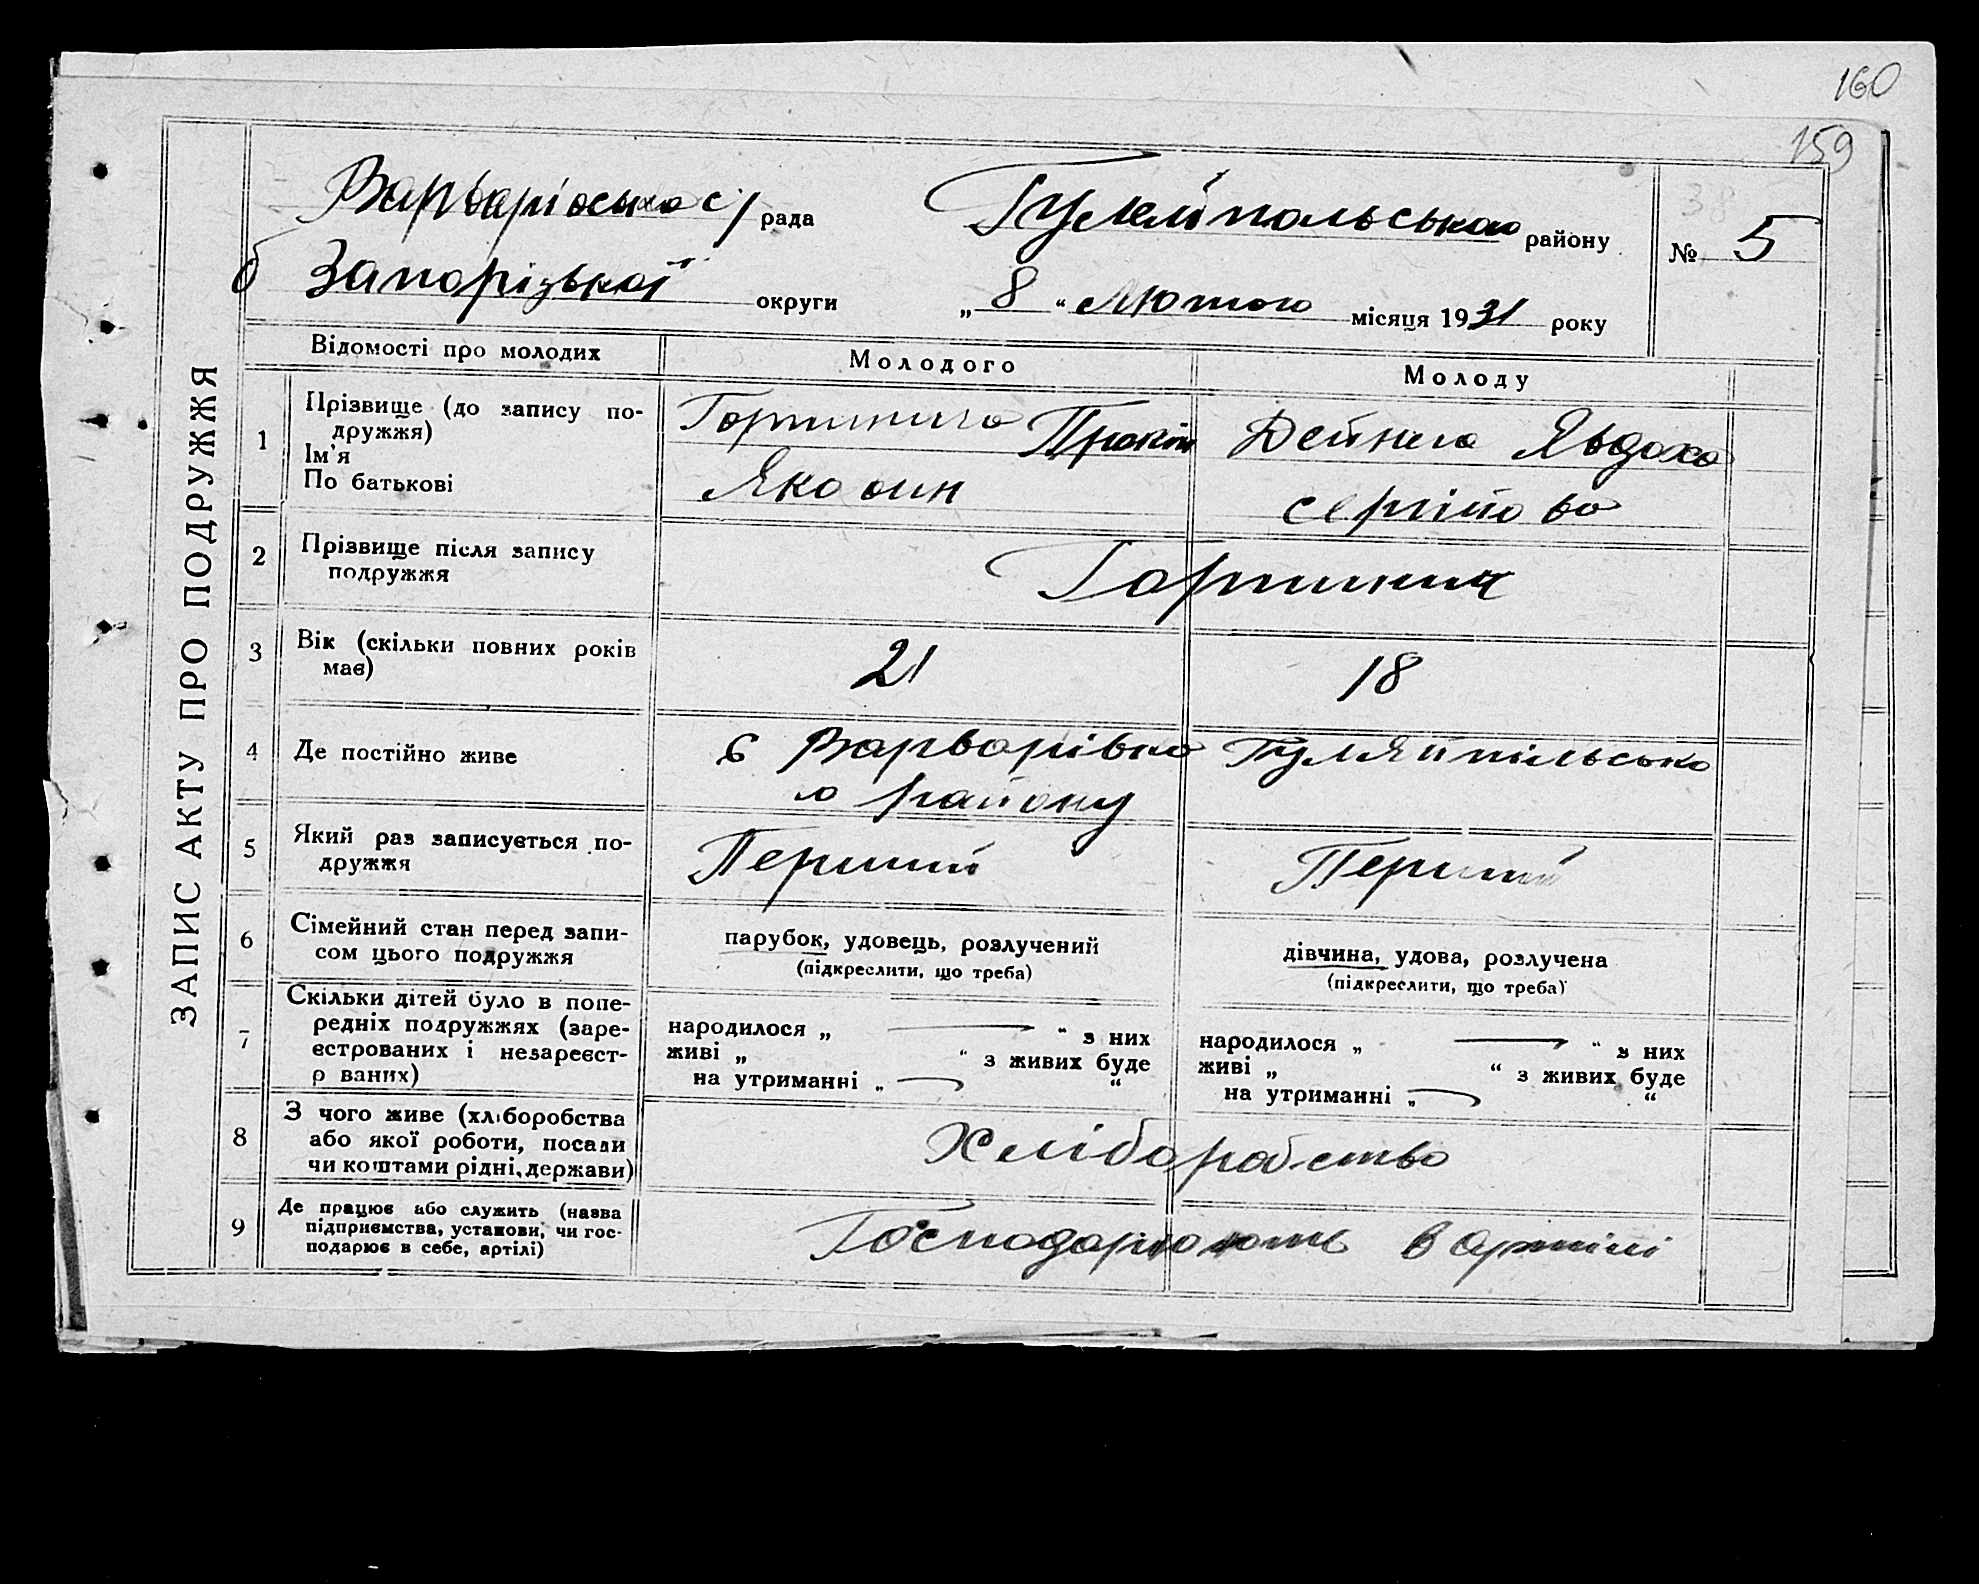 160
159
38
ЗАПИС АКТУ ПРО ПОДРУЖЖЯ
Варварівська с/рада Гуляйпольського району № 5
б Запорізької округи „8“ Лютого місяця 1931 року
Відомості про молодих Молодого Молоду
1 Прізвище (до запису подружжя) Ім'я По батькові
Прокіп Дейнега Явдоха
Якович Сергіївна
2 Прізвище після запису подружжя
Гортинич
3 Вік (скільки повних років має) 21 18
4 Де постійно живе
с Варварівка Гуляйпільсько
го району
5 Який раз записується подружжя Перший Перший
6 Сімейний стан перед записом цього подружжя
парубок, удовець, розлучений дівчина, удова, розлучена
(підкреслити, що треба) (підкреслити, що треба)
7 Скільки дітей було в попередніх подружжях (зареєстрованих і незареєстр ваних)
народилося „ — “ з них народилося „ — “ з них
живі „ “ з живих буде живі „ “ з живих буде
на утриманні „ — “ на утриманні „ — “
8 З чого живе (хліборобства або якої роботи, посади чи коштами рідні, держави)
Хліборобство
9 Де працює або служить (назва підприємства, установи, чи господарює в себе, артілі)
Господарюють в артілі